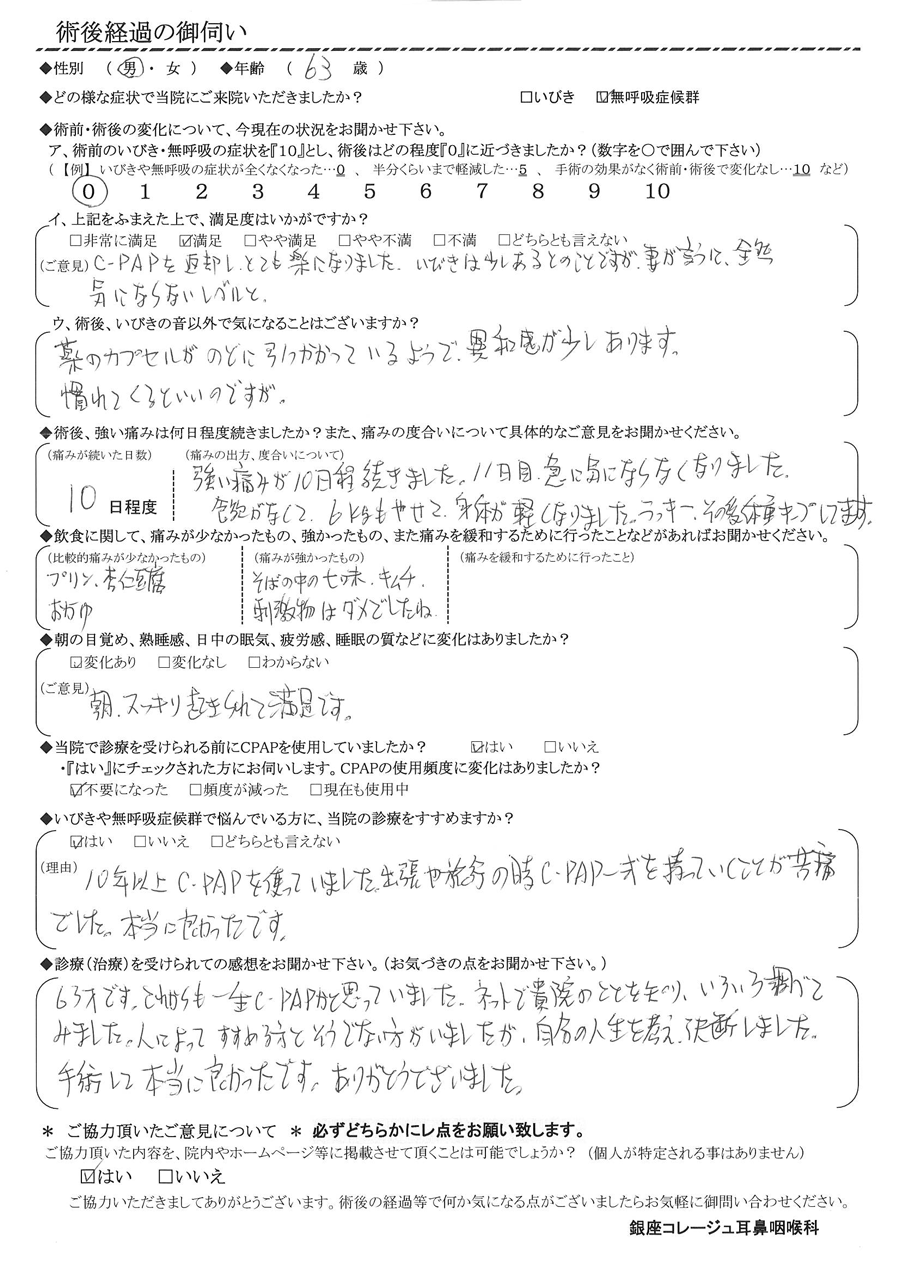 術後経過の御伺い
◆性別 （ 男 ・ 女 ） ◆年齢 （ 63 歳 ）
◆どの様な症状で当院にご来院いただきましたか？ □いびき ☑無呼吸症候群
◆術前・術後の変化について、今現在の状況をお聞かせ下さい。
ア、術前のいびき・無呼吸の症状を『10』とし、術後はどの程度『0』に近づきましたか？（数字を○で囲んで下さい）
（【例】 いびきや無呼吸の症状が全くなくなった…0 、 半分くらいまで軽減した…5 、 手術の効果がなく術前・術後で変化なし…10 など）
0 1 2 3 4 5 6 7 8 9 10
イ、上記をふまえた上で、満足度はいかがですか？
□非常に満足 ☑満足 □やや満足 □やや不満 □不満 □どちらとも言えない
（ご意見） C-PAPを返却し、とても楽になりました。いびきは少しあるとのことですが、妻が言うに、全然
気にならないレベルと。
ウ、術後、いびきの音以外で気になることはございますか？
薬のカプセルが のどに引っかかっているようで、異和感が少しあります。
慣れてくるといいのですが。
◆術後、強い痛みは何日程度続きましたか？また、痛みの度合いについて具体的なご意見をお聞かせください。
（痛みが続いた日数） （痛みの出方、度合いについて）
強い痛みが10日程続きました。11日目、急に気にならなくなりました。
10 日程度
食欲がなくて、6kgもやせて、身体が軽くなりました。ラッキー、その後体重キープしてます。
◆飲食に関して、痛みが少なかったもの、強かったもの、また痛みを緩和するために行ったことなどがあればお聞かせください。
（比較的痛みが少なかったもの） （痛みが強かったもの） （痛みを緩和するために行ったこと）
プリン、杏仁豆腐 そばの中の七味、キムチ、
おかゆ 刺激物はダメでしたね。
◆朝の目覚め、熟睡感、日中の眠気、疲労感、睡眠の質などに変化はありましたか？
☑変化あり □変化なし □わからない
（ご意見） 朝、スッキリ起きられて満足です。
◆当院で診療を受けられる前にCPAPを使用していましたか？ ☑はい □いいえ
・『はい』にチェックされた方にお伺いします。CPAPの使用頻度に変化はありましたか？
☑不要になった □頻度が減った □現在も使用中
◆いびきや無呼吸症候群で悩んでいる方に、当院の診療をすすめますか？
☑はい □いいえ □どちらとも言えない
（理由） 10年以上C-PAPを使っていました。出張や旅行の時C-PAP一式を持っていくことが苦痛
でした。本当に良かったです。
◆診療（治療）を受けられての感想をお聞かせ下さい。（お気づきの点をお聞かせ下さい。）
63才です。これからも一生C-PAPかと思っていました。ネットで貴院のことを知り、いろいろ調べて
みました。人によって すすめる方と そうでない方がいましたが、自分の人生を考え、決断しました。
手術して本当に良かったです。ありがとうございました。
＊ ご協力頂いたご意見について ＊ 必ずどちらかにレ点をお願い致します。
ご協力頂いた内容を、院内やホームページ等に掲載させて頂くことは可能でしょうか？（個人が特定される事はありません）
☑はい □いいえ
ご協力いただきましてありがとうございます。術後の経過等で何か気になる点がございましたらお気軽に御問い合わせください。
銀座コレージュ耳鼻咽喉科